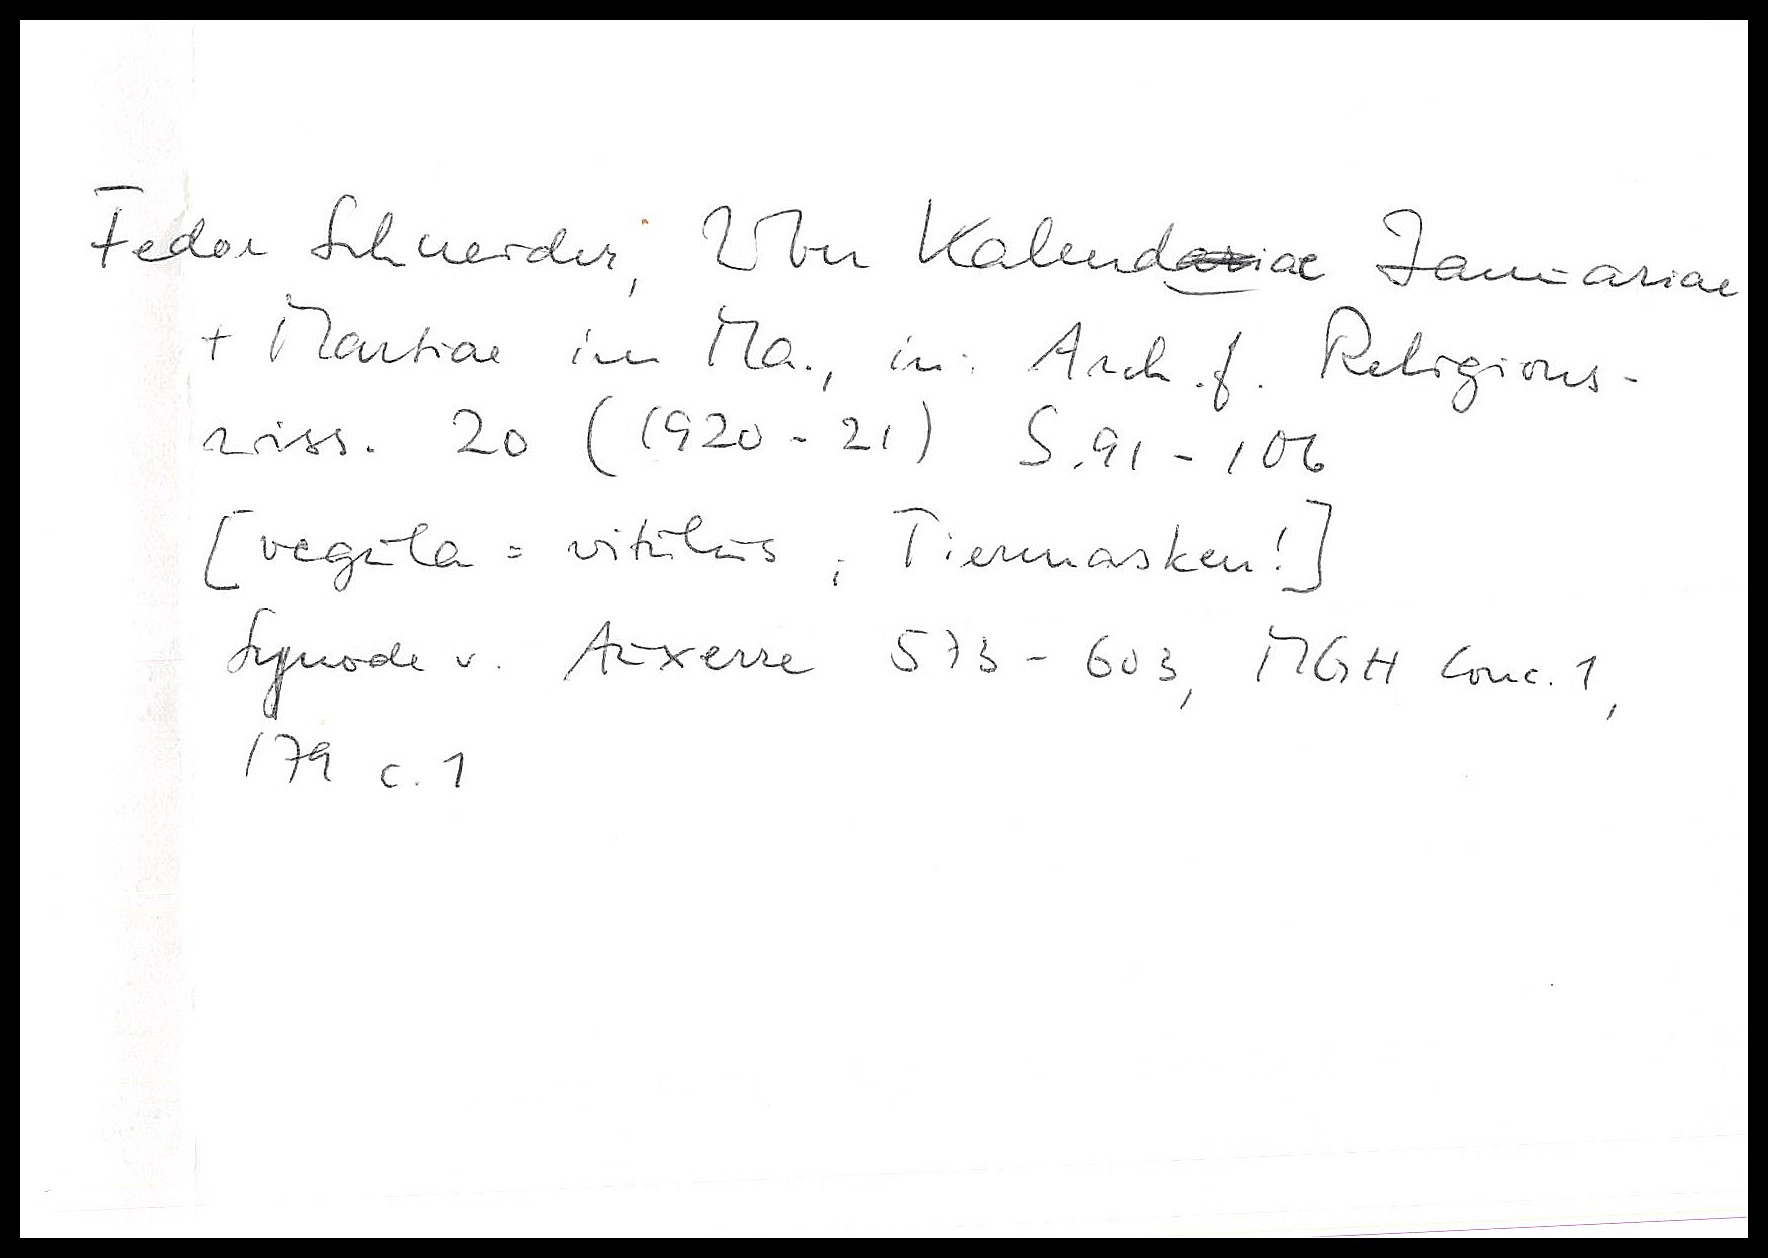 Fedor Schneider, Über Kalendae Januariae
+ Martiae im Ma., in: Arch. f. Religions-
wiss. 20 (1920-21) S. 91-106
[vegula = vitulus, Tiermasken!]
Synode v. Auxerre 573-603, MGH Conc. 1,
179 c. 1